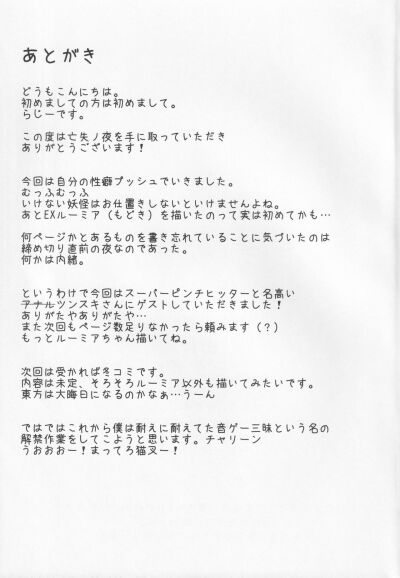 あとがき
どうもこんにちは。
初めましての方は初めまして。
らじーです。
この度は亡失ノ夜を手に取っていただき
ありがとうございます!
今回は自分の性癖プッシュでいきました。
むっふむっふ
いけない妖怪はお仕置きしないといけませんよね。
あとEXルーミア(もどき)を描いたのって実は初めてかも…
何ページかとあるものを書き忘れていることに気づいたのは
締め切り直前の夜なのであった。
何かは内緒。
というわけで今回はスーパーピンチヒッターと名高い
アナルツンスキさんにゲストしていただきました!
ありがたやありがたや…
また次回もページ数足りなかったら頼みます(?)
もっとルーミアちゃん描いてね。
次回は受かれば冬コミです。
内容は未定、そろそろルーミア以外も描いてみたいです。
東方は大晦日になるのかなぁ…うーん
ではではこれから僕は耐えに耐えてた音ゲー三昧という名の
解禁作業をしてこようと思います。チャリーン
うおおおー!まってろ猫叉ー!